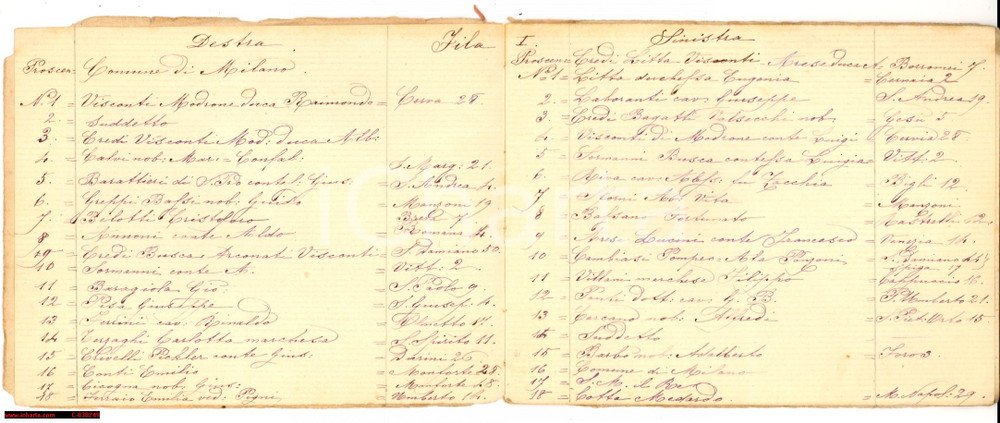 Destra Fila
Proscen = Comune di Milano.
N.º 1 = Visconti Modrone duca Raimondo = Cerva 28
2. = Suddetto
3. = Eredi Visconti Mod: duca Alb:
4. = Calvi nob: Mar: = Gonfal: S. Marg: 21.
5. = Barattieri di S. Pio contes: Gius: = S. Andrea 4.
6. = Greppi Bassi nob: Guido = Manzoni 19
7. = Belotti Cristoforo = Brera 7.
8 = Annoni conte Aldo = P. Romana 4.
9 = Eredi Busca Arconati Visconti = S. Damiano 50.
10 = Sormanni conte A. = Vitt: 2.
11 = Baragiola Gio: = S. Paolo 9.
12 = Pisa Giuseppe = S. Gius: 4.
13 = cav: Rinaldo = Olmetto 17.
14 = Terzaghi Carlotta marchesa = S. Spirito 11.
15 = Crivelli Pichler conte Gius: = Darini 26
16 = Conti Emilio = Monforte 23
17 = Cicogna nob: Gius: = Monforte 48.
18 = Emilia ved: Pigni = Umberto 14.
I. Sinistra
Proscen = Eredi Litta Visconti Arese duca A. Borromei 7.
N.º 1 = Litta duchessa Eugenia = Cernaia 2
2. = Laboranti cav: Giuseppe = S. Andrea 19.
3. = Eredi Bagatti Valsecchi nob: = Gesù 5
4. = Visconti di Modrone conte Luigi = Cerva 28
5 = Sormanni Busca contessa Luigia = Vitt: 2
6. = Riva cav: Aless: fu Zacchia = Bigli 12.
7 = Storni Avv: Vita = Manzoni
8 = Bassano Fortunato = 12.
9 = Arese Lucini conte Francesco = Venezia 14.
10 = Cambiasi Pompeo = S. Damiano
Spiga 17
11 = Villani marchese Filippo = Cappuccio 16.
12 = Ponti dott: cav: G. B. = P. Umberto 21.
13 = nob: Alfredo = 15.
14 = Suddetto
15 = Barbò nob: Adelberto = Foro 3.
16 = Comune di Milano
17 = S. M. il Re
18 = Cotta Medardo. = M. Napol: 29.
www.icharta.com C-030249
iCharta